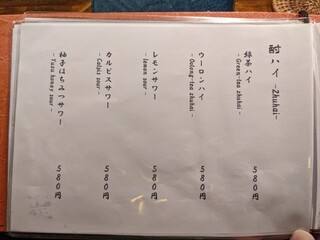 酎ハイ -Zhuhai-
緑茶ハイ
- Green-tea zhuhai -
580円
ウーロンハイ
- Oolong-tea zhuhai -
580円
レモンサワー
- lemon sour -
580円
カルピスサワー
- Calpis sour -
580円
柚子はちみつサワー
- Yuzu honey sour -
580円